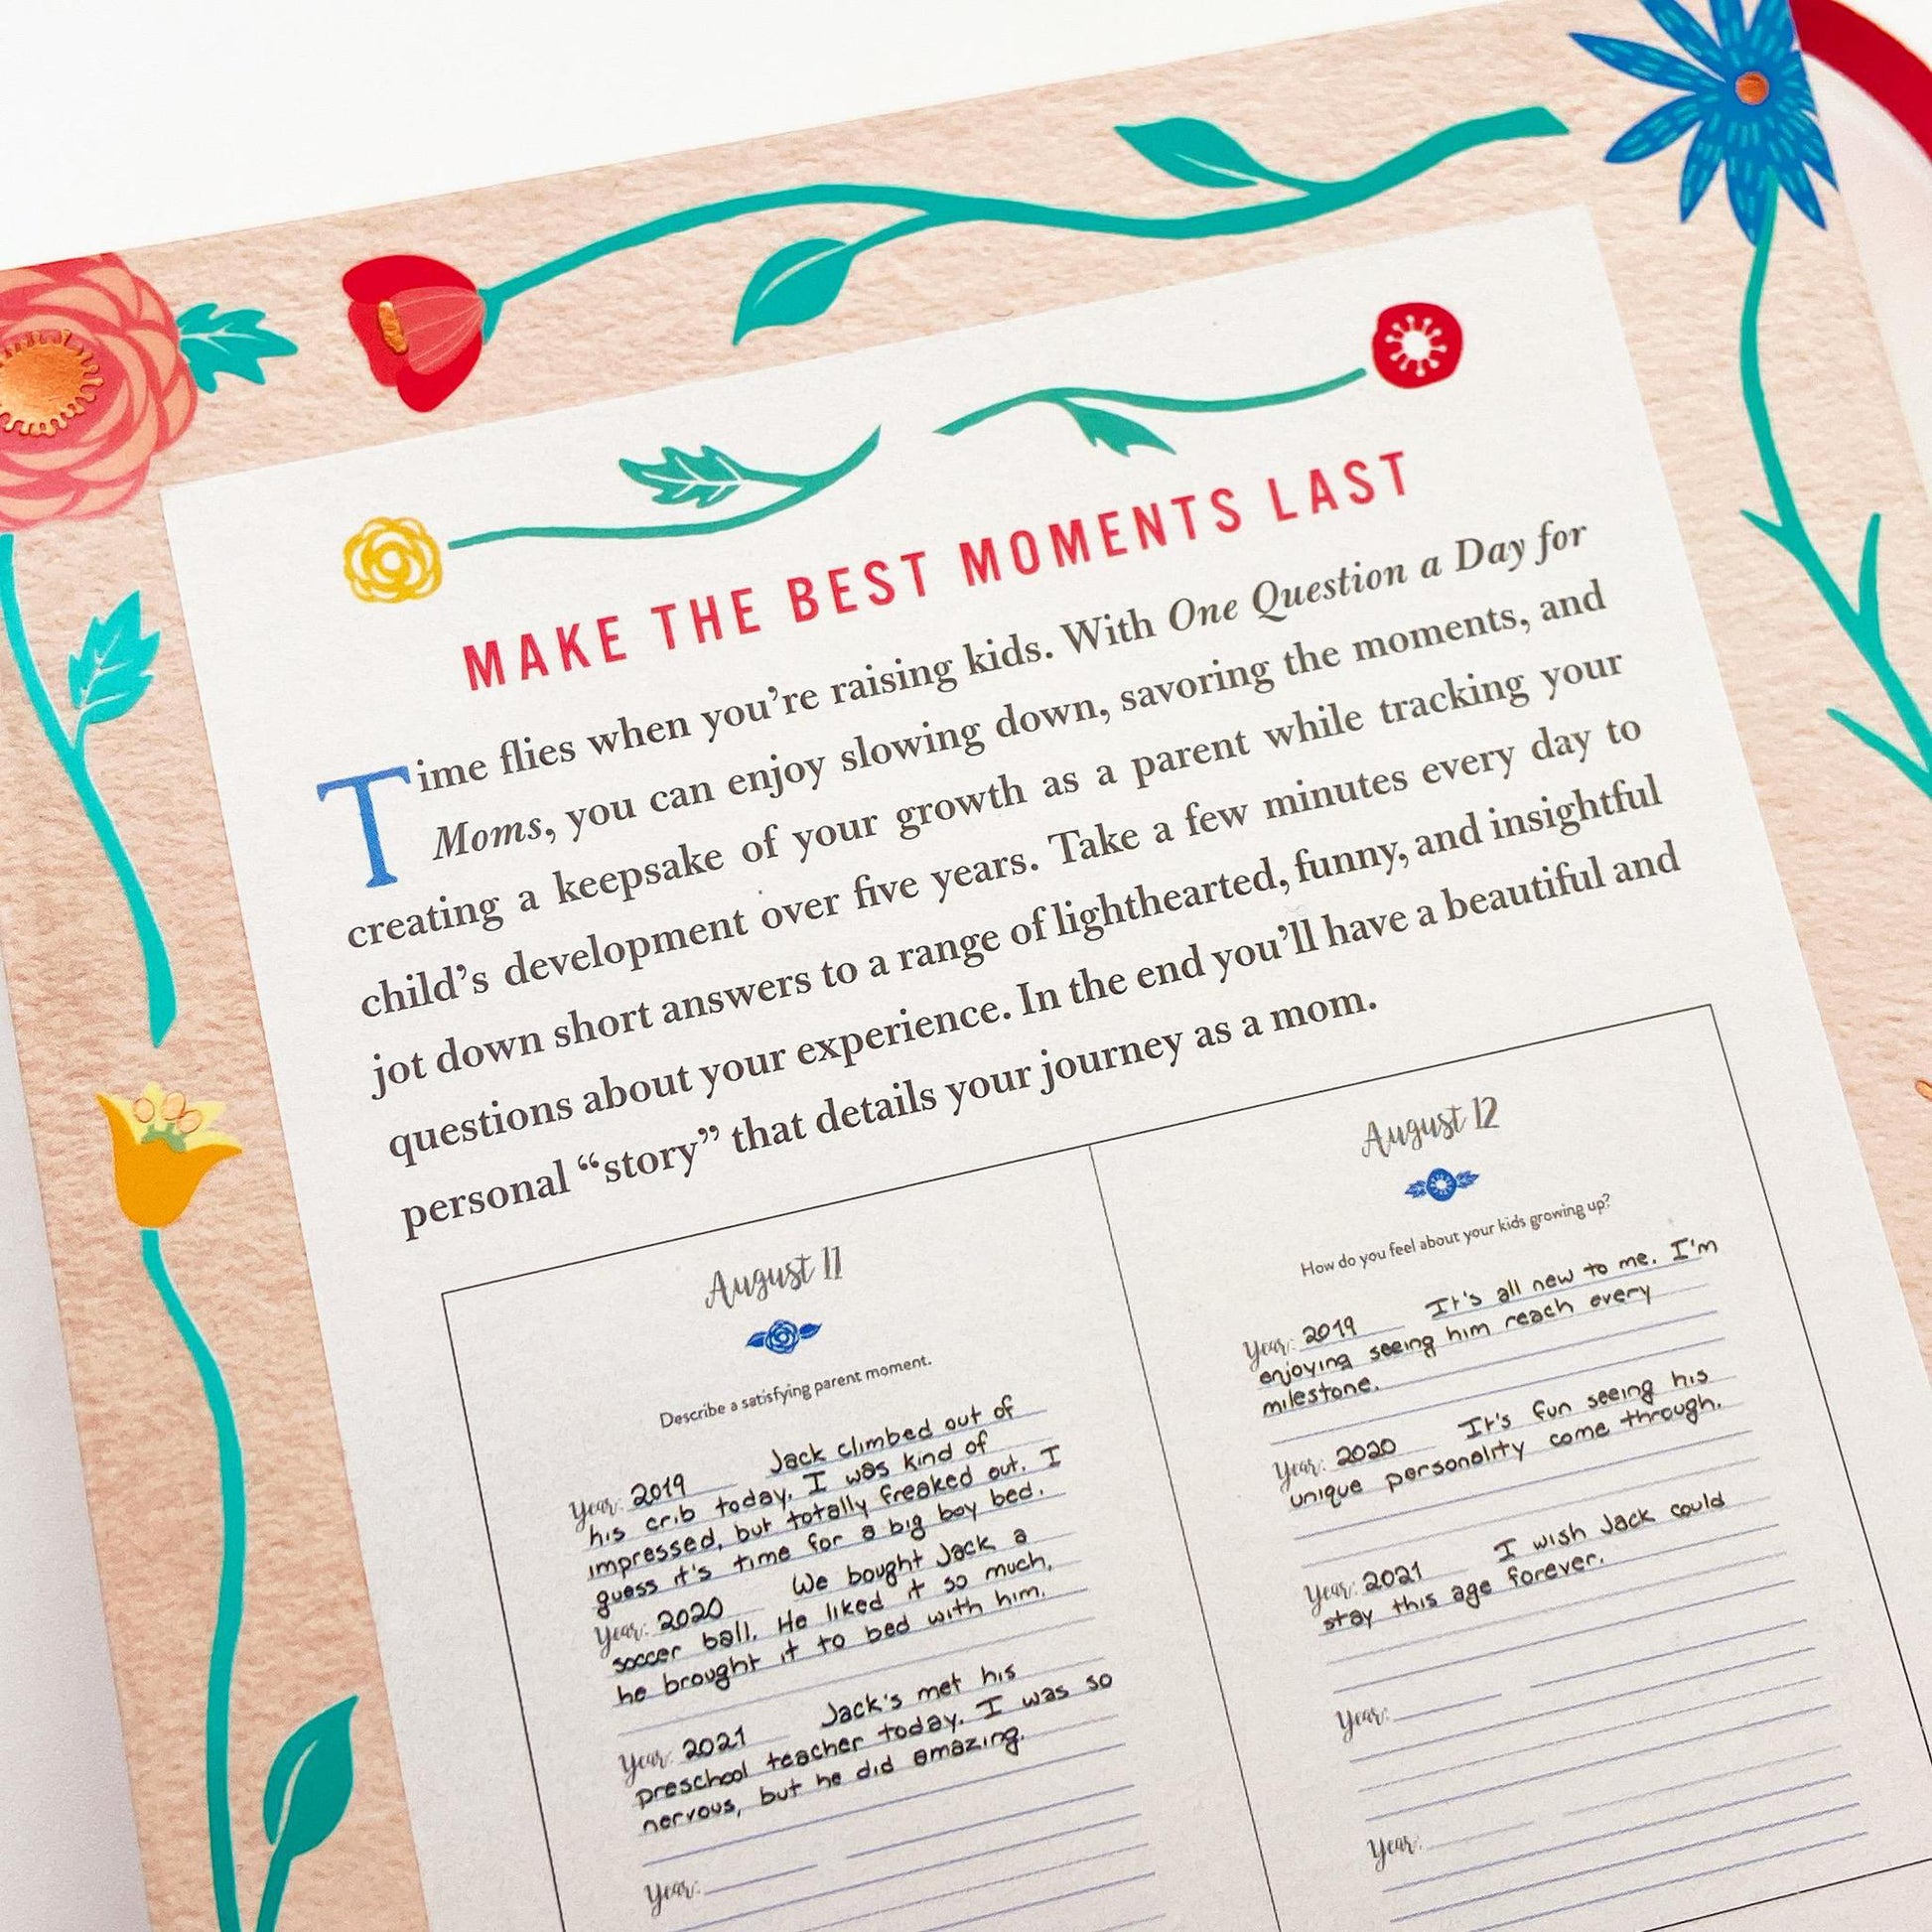 MAKE THE BEST MOMENTS LAST
Time flies when you're raising kids. With One Question a Day for
Moms, you can enjoy slowing down, savoring the moments, and
creating a keepsake of your growth as a parent while tracking your
child's development over five years. Take a few minutes every day to
jot down short answers to a range of lighthearted, funny, and insightful
questions about your experience. In the end you'll have a beautiful and
personal “story” that details your journey as a mom.
August 11
Describe a satisfying parent moment.
Year: 2019 Jack climbed out of
his crib today. I was kind of
impressed, but totally freaked out. I
guess it's time for a big boy bed.
Year: 2020 We bought Jack a
soccer ball. He liked it so much,
he brought it to bed with him.
Year: 2021 Jack's met his
preschool teacher today. I was so
nervous, but he did amazing.
Year:
August 12
How do you feel about your kids growing up?
Year: 2019 It's all new to me. I'm
enjoying seeing him reach every
milestone.
Year: 2020 It's fun seeing his
unique personality come through.
Year: 2021 I wish Jack could
stay this age forever.
Year:
Year: